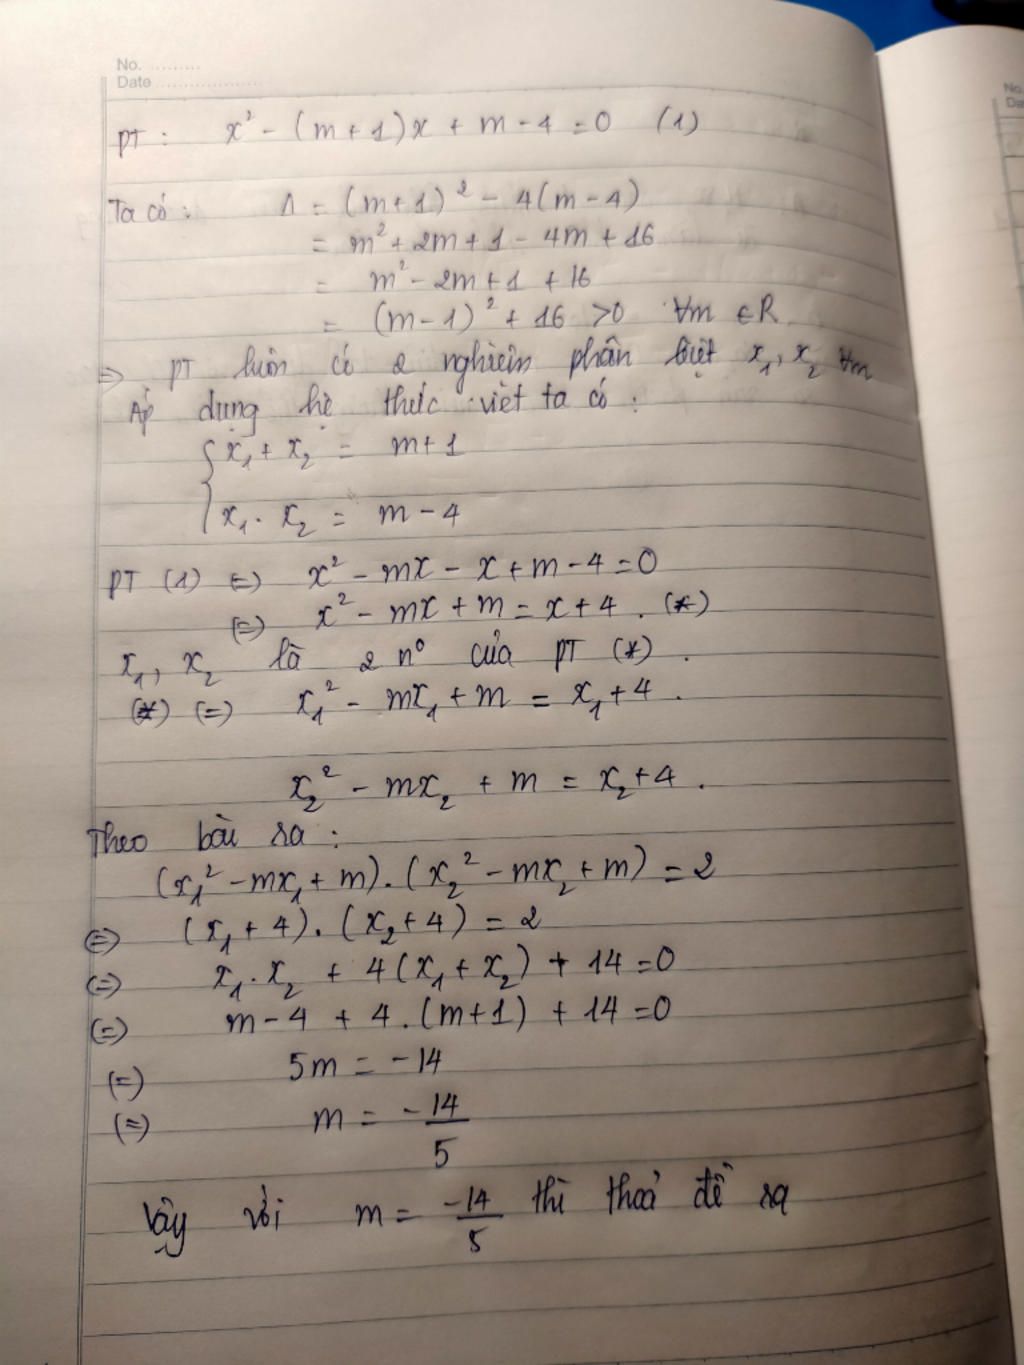 No. .........
Date ..................
PT : x² - (m+1)x + m - 4 = 0 (1)
Ta có : Δ = (m+1)² - 4(m-4)
= m² + 2m + 1 - 4m + 16
= m² - 2m + 1 + 16
= (m-1)² + 16 >0 ∀m ∈ R
=> PT luôn có 2 nghiệm phân biệt x₁, x₂ ∀m
Áp dụng hệ thức viét ta có :
{ x₁ + x₂ = m+1
x₁ . x₂ = m-4
PT (1) (=) x² - mx - x + m - 4 = 0
(=) x² - mx + m = x + 4 . (*)
x₁, x₂ là 2 n⁰ của PT (*) .
(*) (=) x₁² - mx₁ + m = x₁ + 4 .
x₂² - mx₂ + m = x₂ + 4 .
Theo bài ra :
(x₁² - mx₁ + m) . (x₂² - mx₂ + m) = 2
(=) (x₁ + 4) . (x₂ + 4) = 2
(=) x₁ . x₂ + 4(x₁ + x₂) + 14 = 0
(=) m - 4 + 4 . (m+1) + 14 = 0
(=) 5m = -14
(=) m = -14/5
Vậy với m = -14/5 thì thoả đề ra